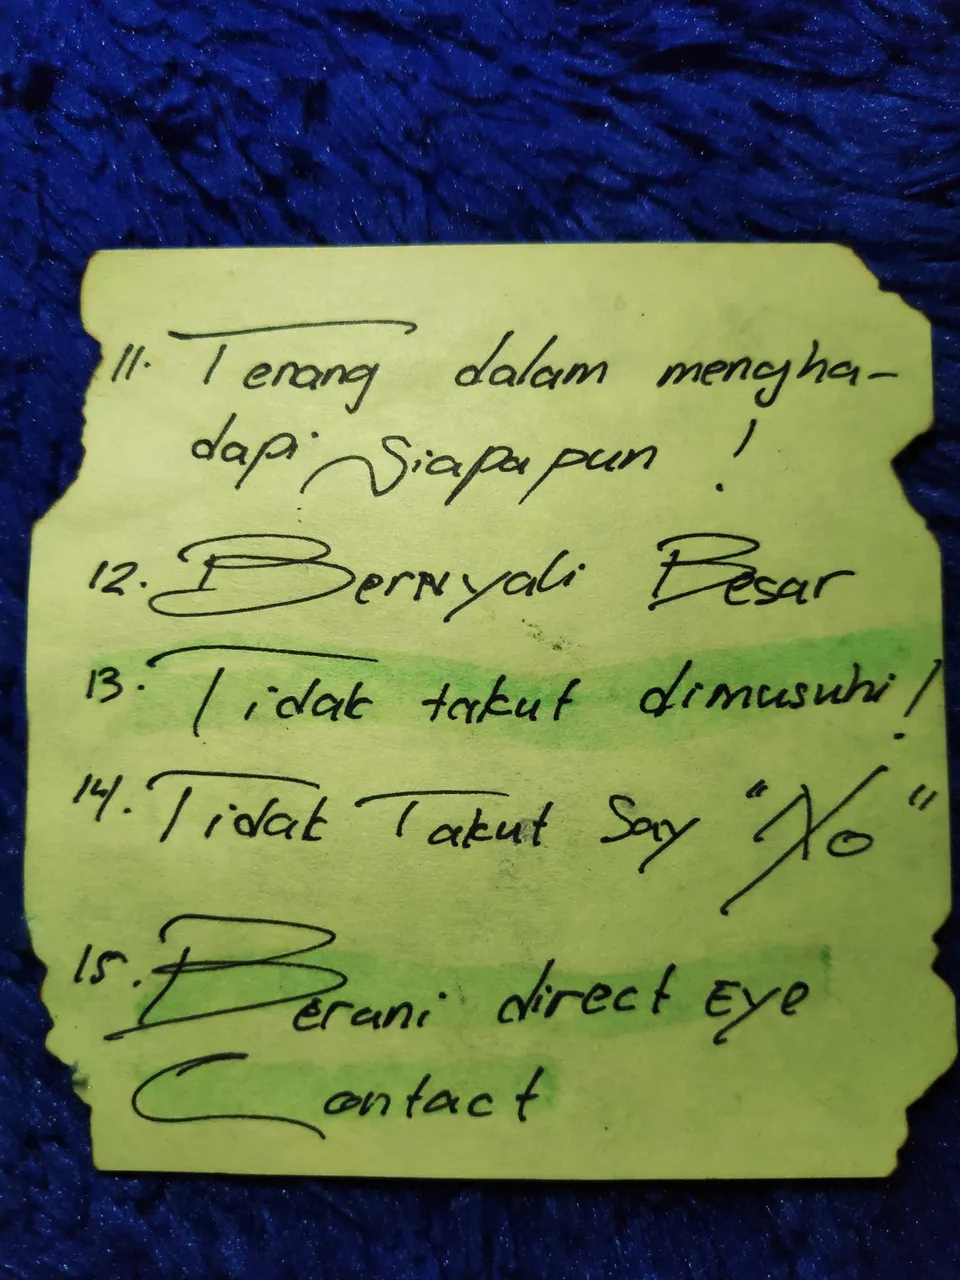 11. Tenang dalam mengha-
dapi Siapapun !
12. Bernyali Besar
13. Tidak takut dimusuhi!
14. Tidak Takut Say "No"
15. Berani direct Eye
Contact